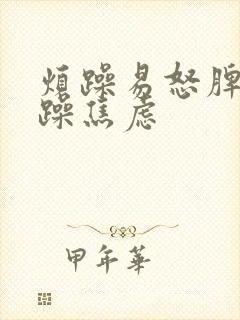 煩躁易怒脾
躁焦虑
甲年華